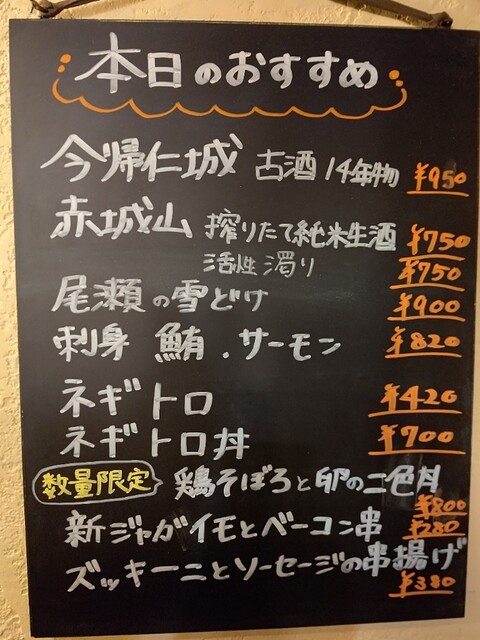 本日のおすすめ
今帰仁城 古酒 14年物 ¥950
赤城山 搾りたて純米生酒 ¥750
活性濁り ¥750
尾瀬の雪どけ ¥900
刺身 鮪.サーモン ¥820
ネギトロ ¥420
ネギトロ丼 ¥700
数量限定 鶏そぼろと卵の二色丼
¥800
新ジャガイモとベーコン串 ¥280
ズッキーニとソーセージの串揚げ
¥380